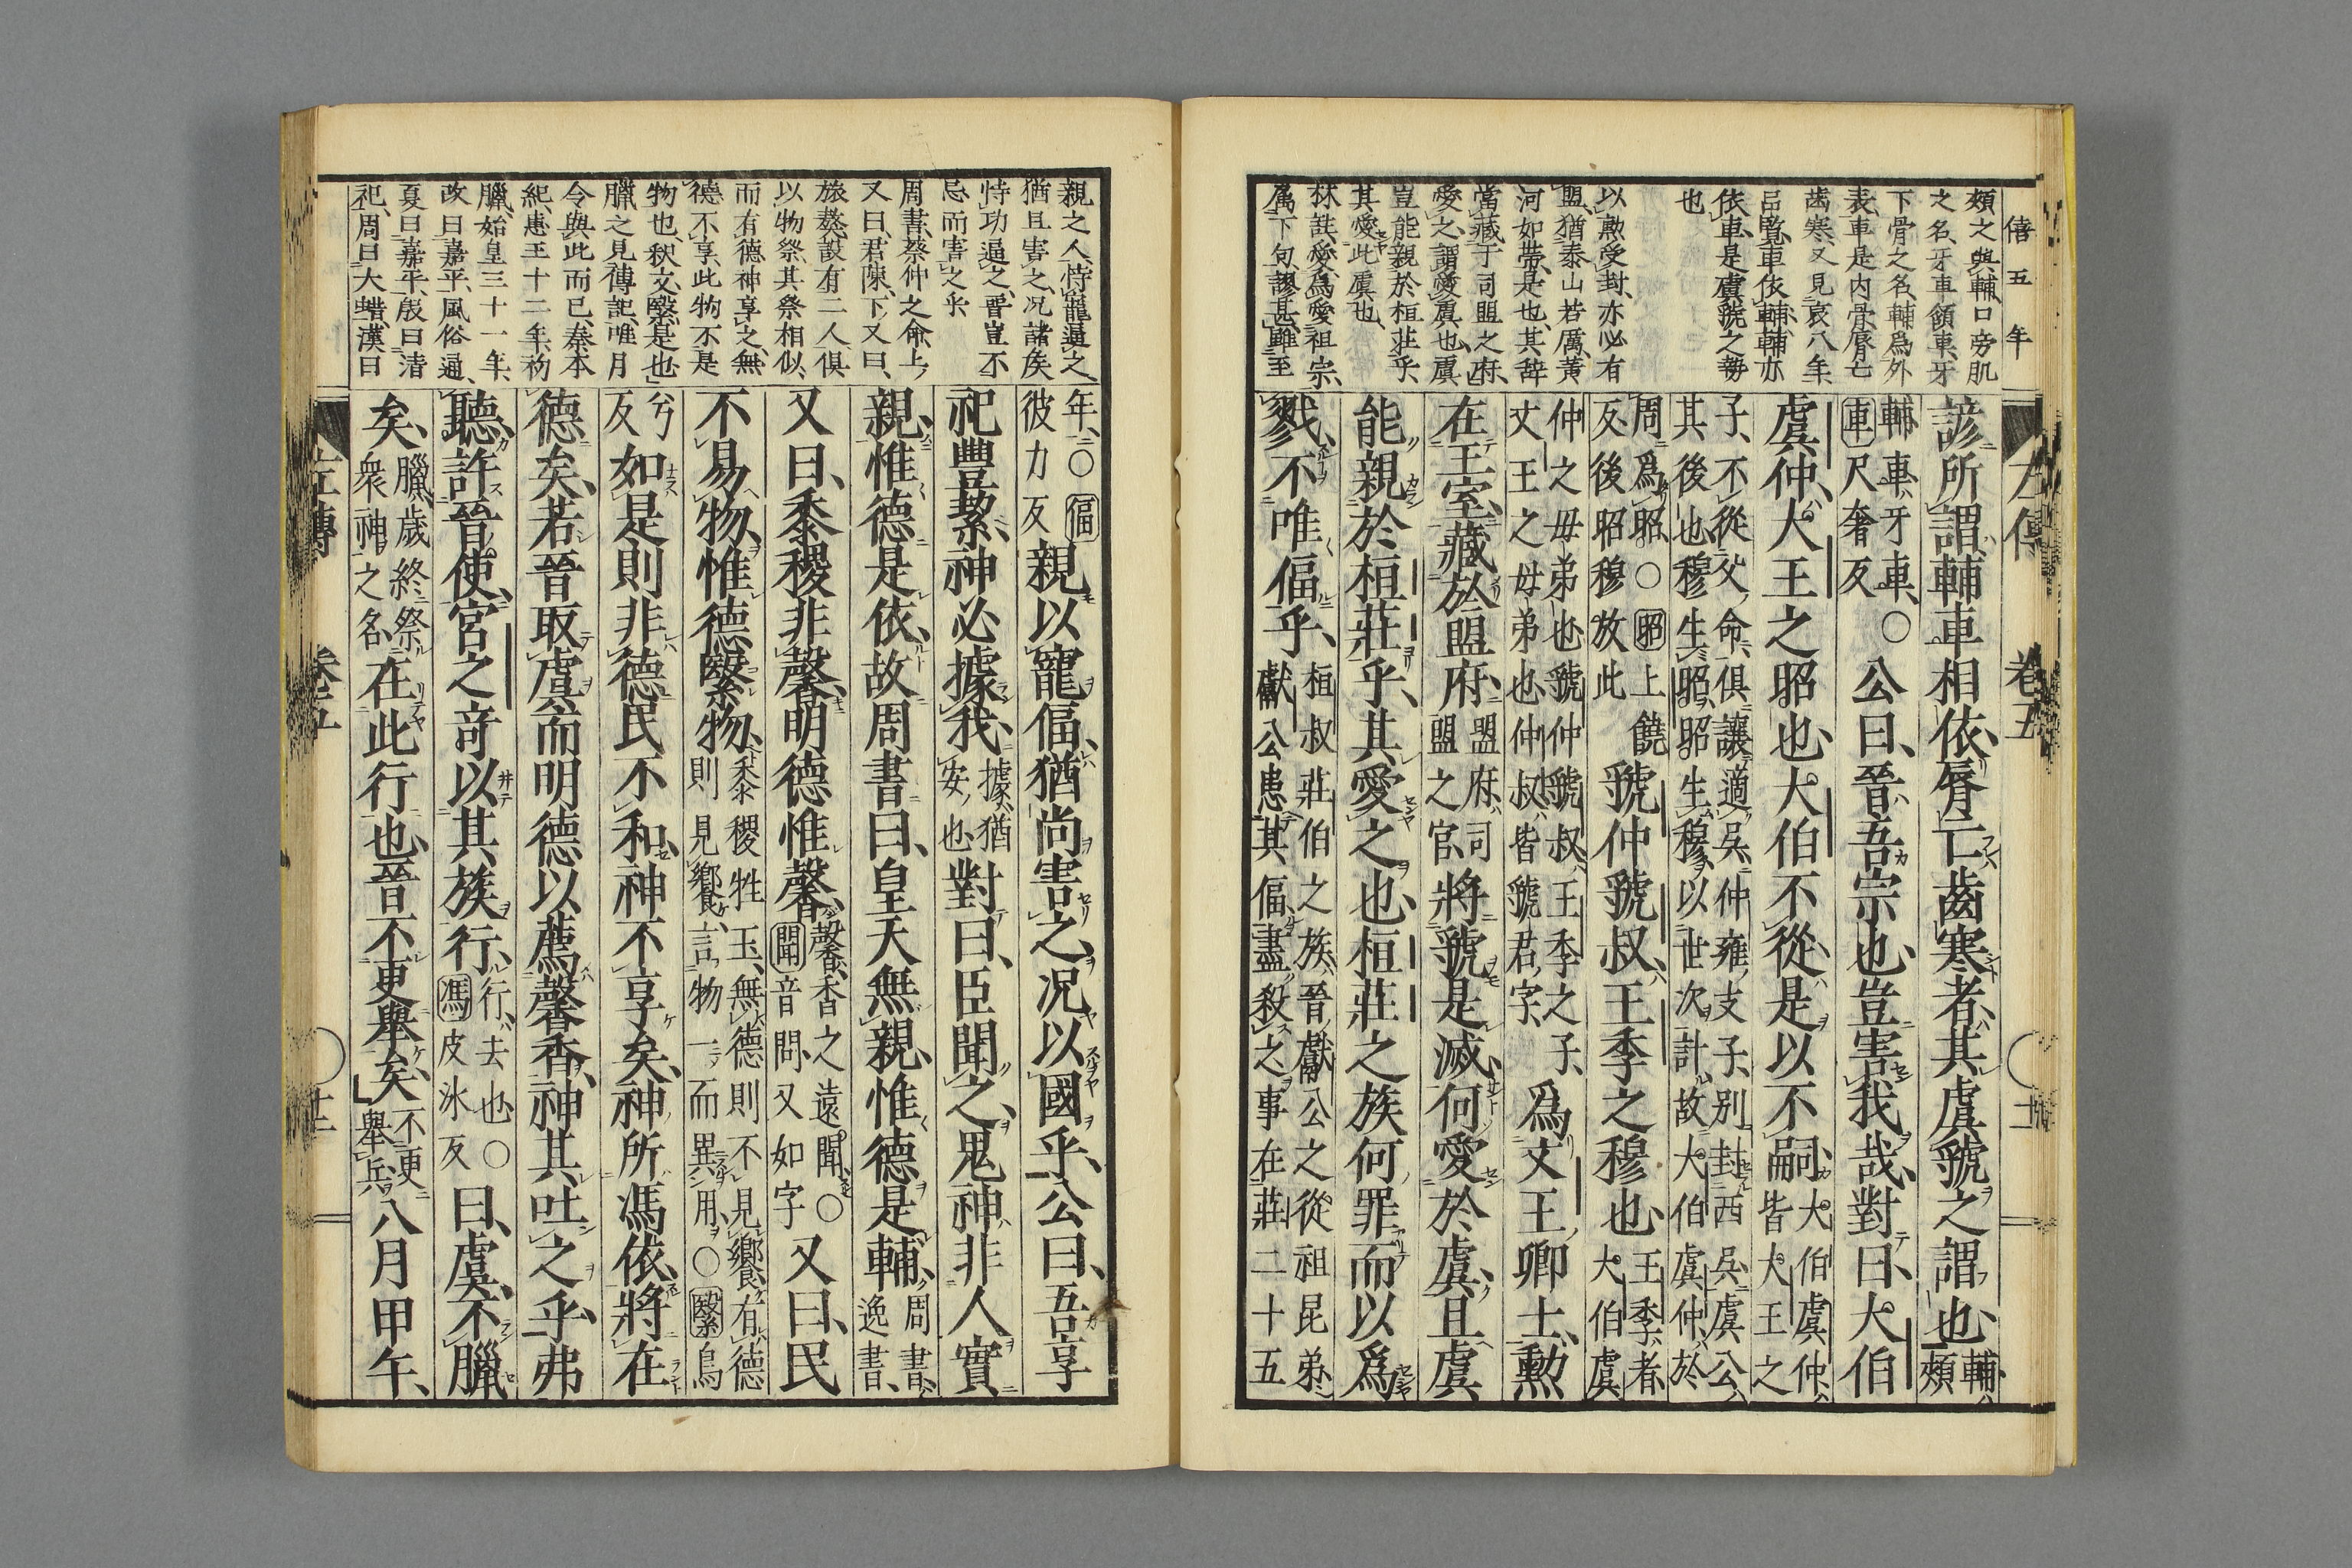 僖五年
頰之與輔口旁肌
之名牙車頷車牙
下骨之名輔爲外
表車是内骨脣亡
齒寒又見哀八年
呂覧車依輔輔亦
依車是虞虢之勢
也
以勲受封亦必有
盟猶泰山若厲黄
河如帶是也其辞
當藏于司盟之府
愛之謂愛虞也虞
豈能親於桓莊乎
其愛此虞也
林註愛爲愛祖宗
属下句謬甚雖至
左傳 卷五
諺所謂輔車相依脣亡齒寒者其虞虢之謂也輔頰
輔車牙車〇車尺奢反公曰晉吾宗也豈害我哉對曰大伯
虞仲大王之昭也大伯不從是以不嗣大伯虞仲皆大王之
子不從父命俱讓適吳仲雍支子別封西吳虞公其後也穆生昭昭生穆以世次計故大伯虞仲於
周爲昭〇昭上饒反後昭穆放此虢仲虢叔王季之穆也王季者大伯虞
仲之母弟也虢仲虢叔王季之子文王之母弟也仲叔皆虢君字爲文王卿士勲
在王室藏於盟府盟府司盟之官將虢是滅何愛於虞且虞
能親於桓莊乎其愛之也桓莊之族何罪而以爲
戮不唯偪乎桓叔莊伯之族晉獻公之從祖昆弟獻公患其偪盡殺之事在莊二十五
親之人恃寵逼之
猶且害之况諸矦
恃功逼之晉豈不
忌而害之乎
周書蔡仲之命上
又曰君陳下又曰
旅獒説有二人俱
以物祭其祭相似
而有德神享之無
德不享此物不是
物也釈文繄是也
臘之見傳記唯月
令與此而已秦本
紀惠王十二年初
臘始皇三十一年
改曰嘉平風俗通
夏曰嘉平殷曰清
祀周曰大蜡漢曰
年〇偪彼力反親以寵偪猶尚害之况以國乎公曰吾享
祀豐絜神必據我據猶安也對曰臣聞之鬼神非人實
親惟德是依故周書曰皇天無親惟德是輔周書逸書
又曰黍稷非馨明德惟馨馨香之遠聞〇聞音問又如字又曰民
不易物惟德繄物黍稷牲玉無德則不見饗有德則見饗言物一而異用〇繄烏
兮反如是則非德民不和神不享矣神所馮依將在
德矣若晉取虞而明德以薦馨香神其吐之乎弗
聽許晉使宮之奇以其族行行去也〇馮皮冰反曰虞不臘
矣臘歲終祭衆神之名在此行也晉不更舉矣不更舉兵八月甲午
左傳 卷五